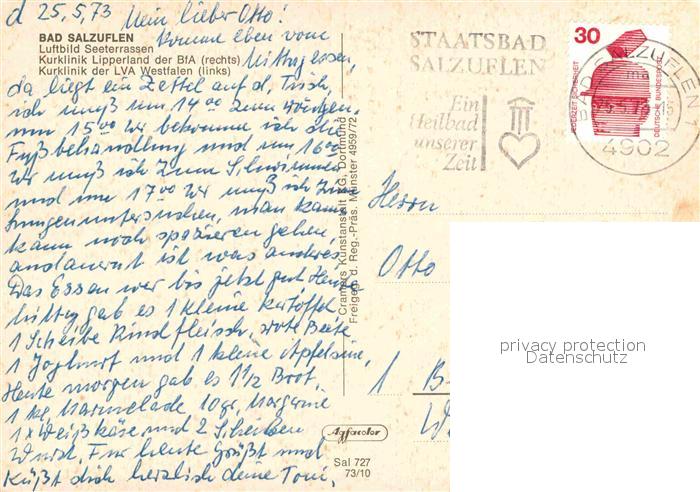 d 25.5.73 Mein lieber Otto!
BAD SALZUFLEN
Luftbild Seeterrassen
Kurklinik Lipperland der BfA (rechts)
Kurklinik der LVA Westfalen (links)
Komme eben vom
Mittagessen,
da liegt ein Zettel auf d. Tisch,
ich muß um 14 00 zum wiegen,
um 15 00 bekomme ich die
Fußbehandlung und um 16 00
muß ich zum Schwimmen
und um 17 00 muß ich zur
Lungenuntersuchen, man kann
kann noch spazieren gehen,
andauernt ist was anderes.
Das Essen war bis jetzt gut Heute
Mittag gab es 1 kleine Kartoffel
1 Scheibe Rindfleisch, rote Beete
1 Joghurt und 1 kleine Apfelsine,
Heute morgen gab es 1 1/2 Brot,
1 Marmelade, 10 gr. Margarine
1 x Weißkäse und 2 Scheiben
Wurst. Für heute grüßt und
küßt dich herzlich deine Toni,
STAATSBAD
SALZUFLEN
Ein
Heilbad
unserer
Zeit
30
JEDERZEIT SICHERHEIT
DEUTSCHE BUNDESPOST
BAD SALZUFLEN 1
25.5.73
4902
Cramers Kunstanstalt KG, Dortmund
Freigeg. d. Reg.-Präs. Münster 4959/72
Herrn
Otto
1 B
privacy protection
Datenschutz
Agfacolor
Sal 727
73/10